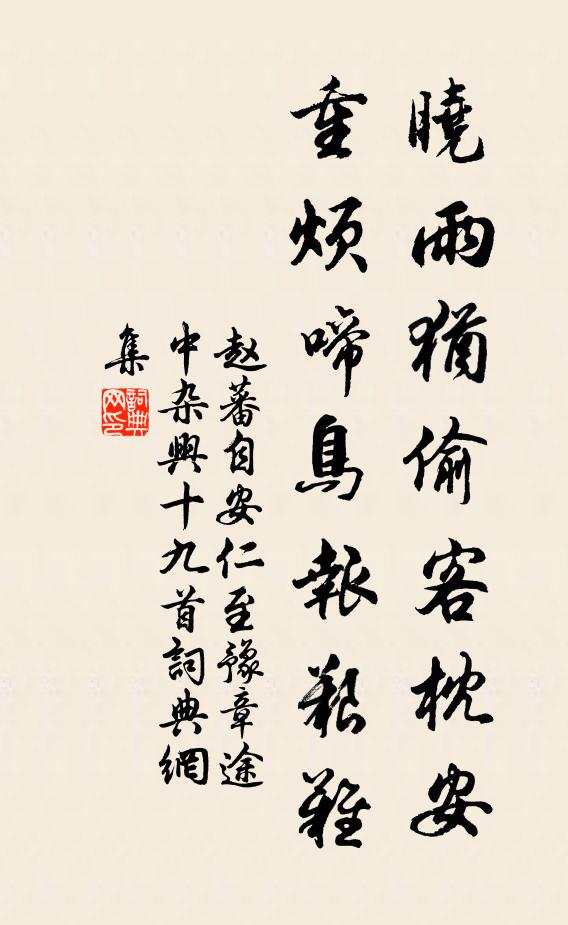 曉雨猶偷客枕安
重煩啼鳥報艱難
赵蕃自安仁至豫章途
中杂興十九首詞典網
集
詞典
网印